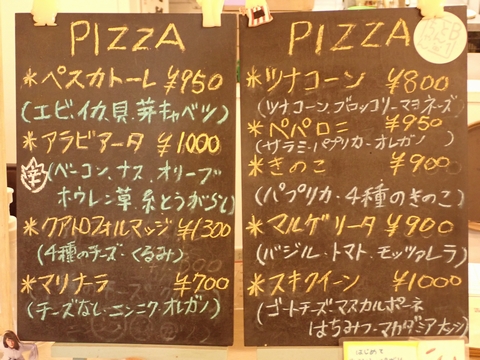 PIZZA
*ペスカトーレ ¥950
(エビ.イカ.貝.芽キャベツ)
*アラビアータ ¥1000
辛
(ベーコン.ナス.オリーブ
ホウレン草.糸とうがらし)
*クアトロフォルマッジ ¥1300
(4種のチーズ・くるみ)
*マリナラ ¥700
(チーズなし・ニンニク・オレガノ)
PIZZA
*ツナコーン ¥800
(ツナコーン.ブロッコリー.マヨネーズ)
*ペパロニ ¥950
(サラミ・パプリカ・オレガノ)
*きのこ ¥900
(パプリカ・4種のきのこ)
*マルゲリータ ¥900
(バジル・トマト.モッツァレラ)
*スキクイーン ¥1000
(ゴートチーズ・マスカルポーネ
はちみつ・マカダミアナッツ)
はじめて